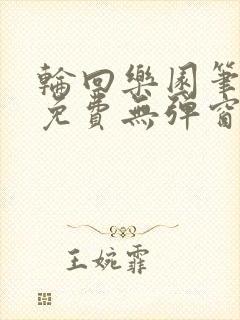 輪回樂園筆
免費無彈窗
王婉霏